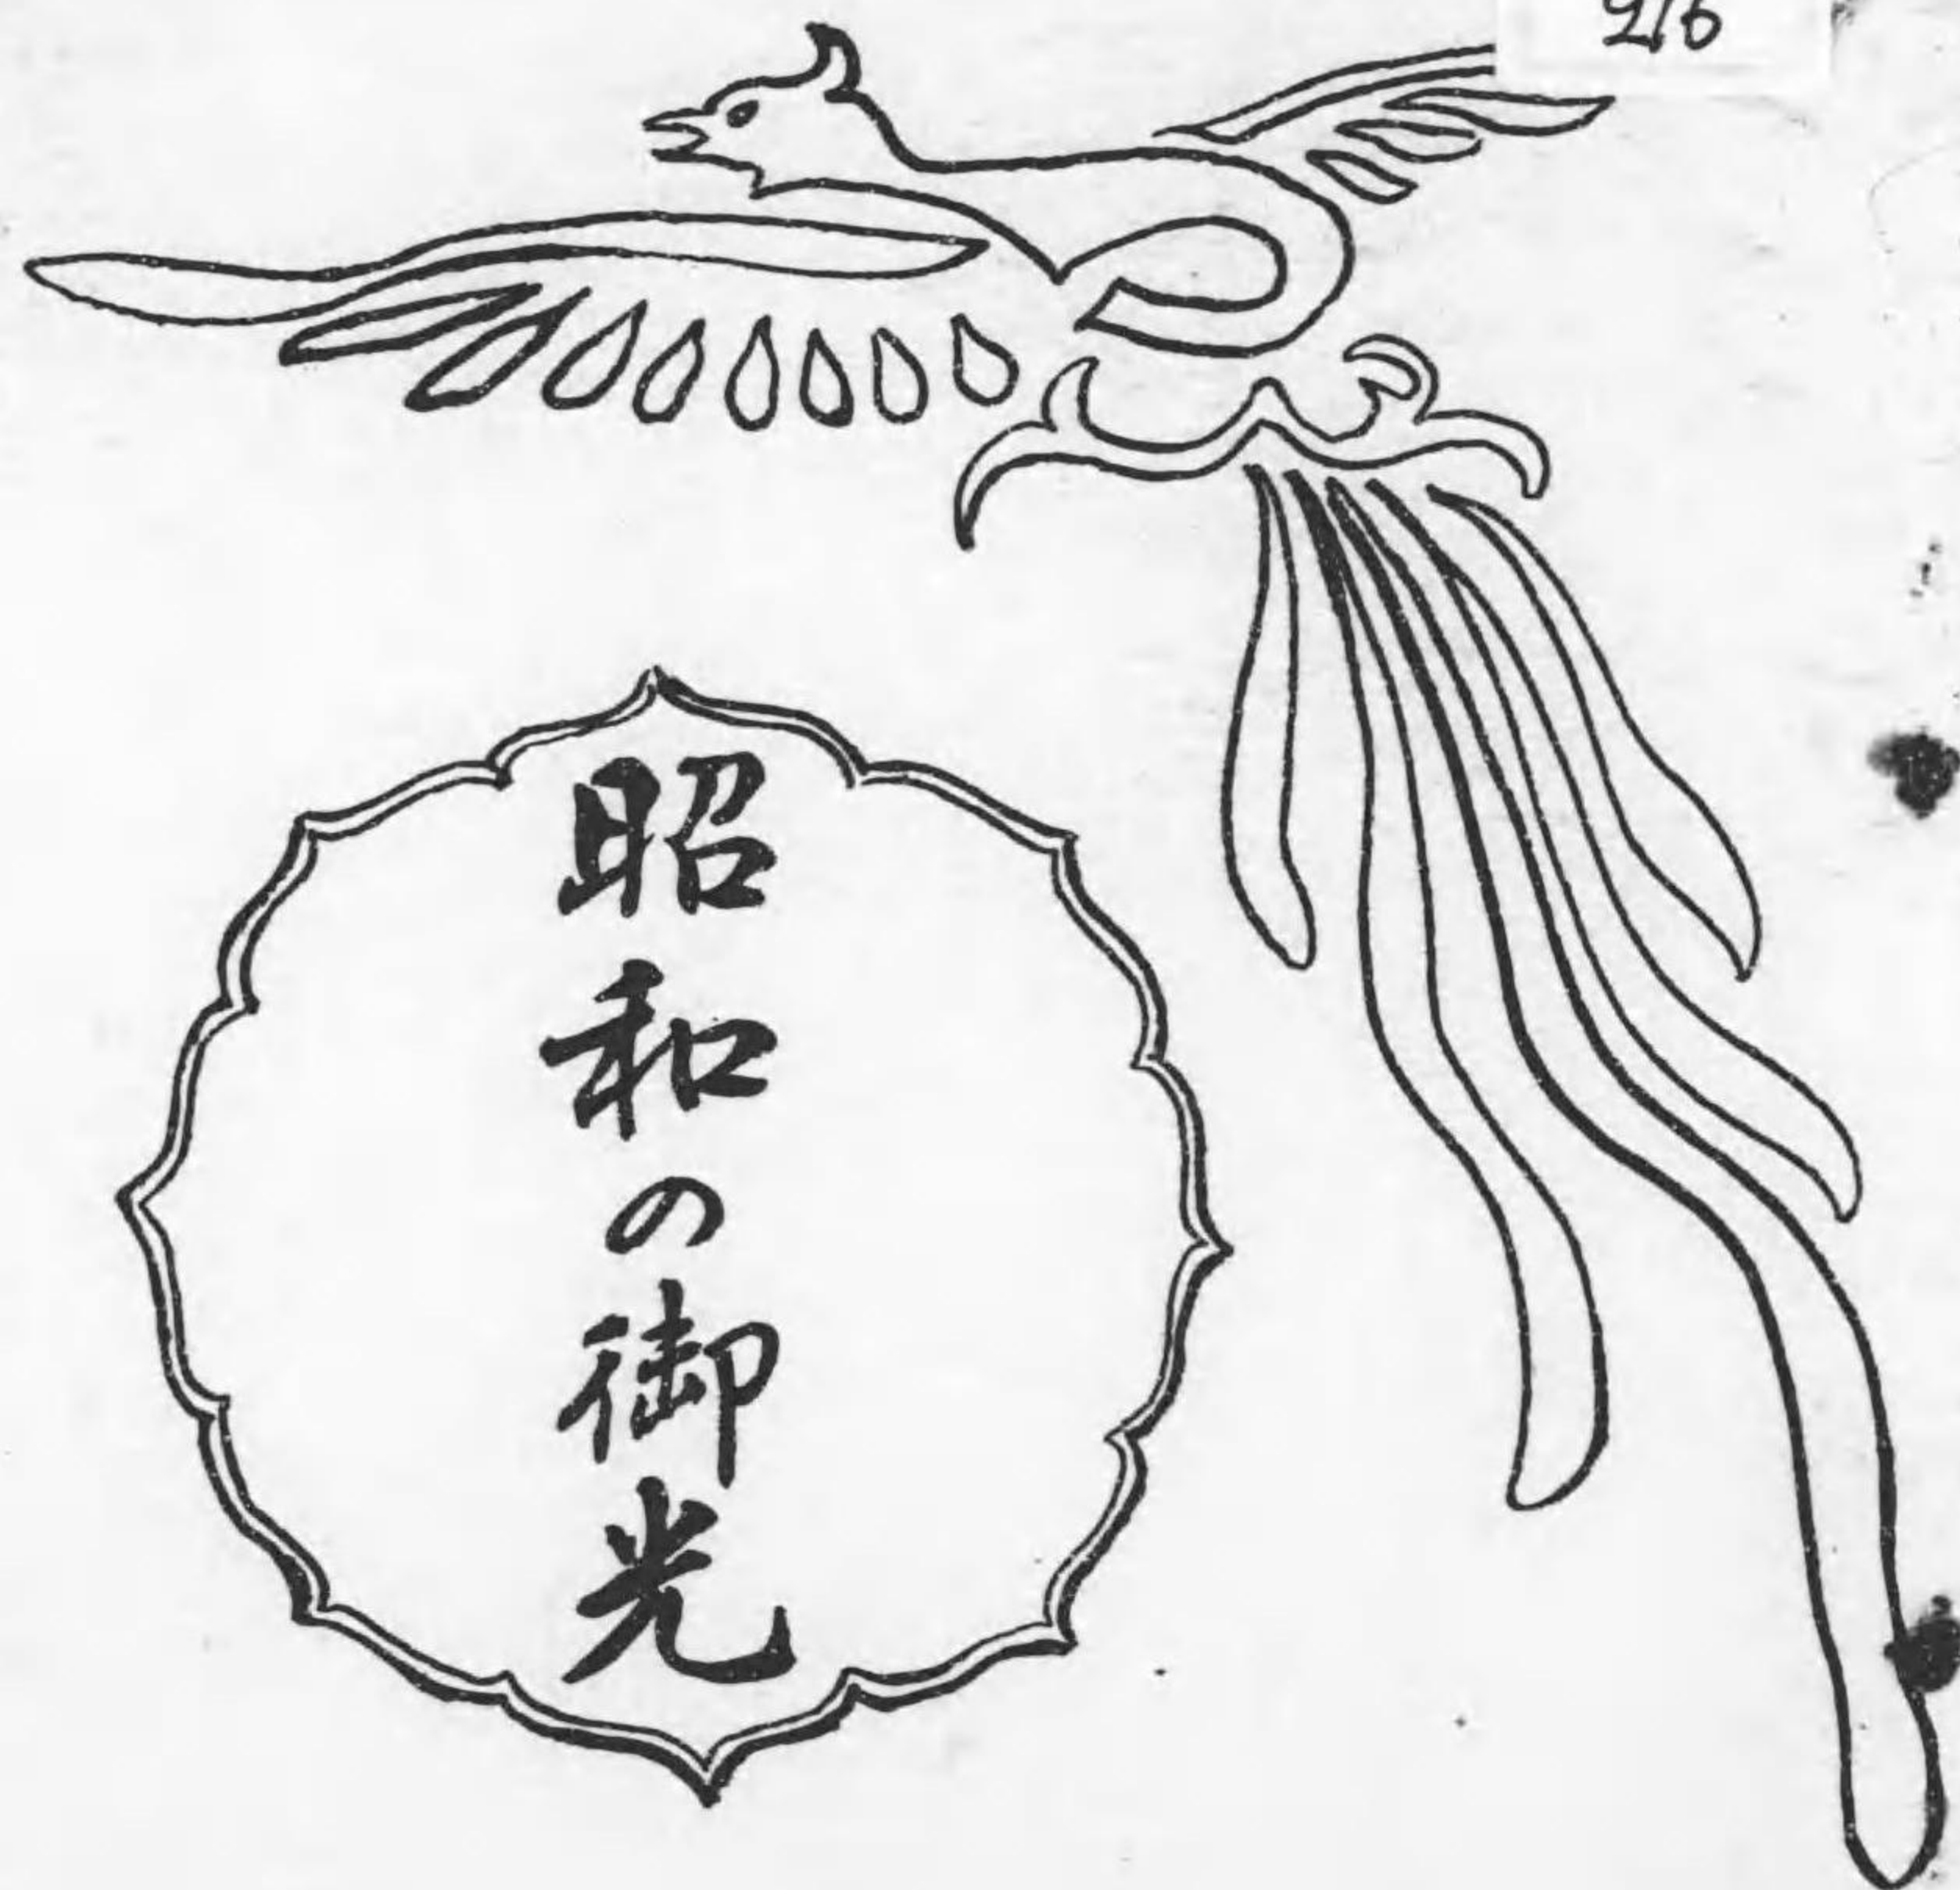 216
昭和の御光